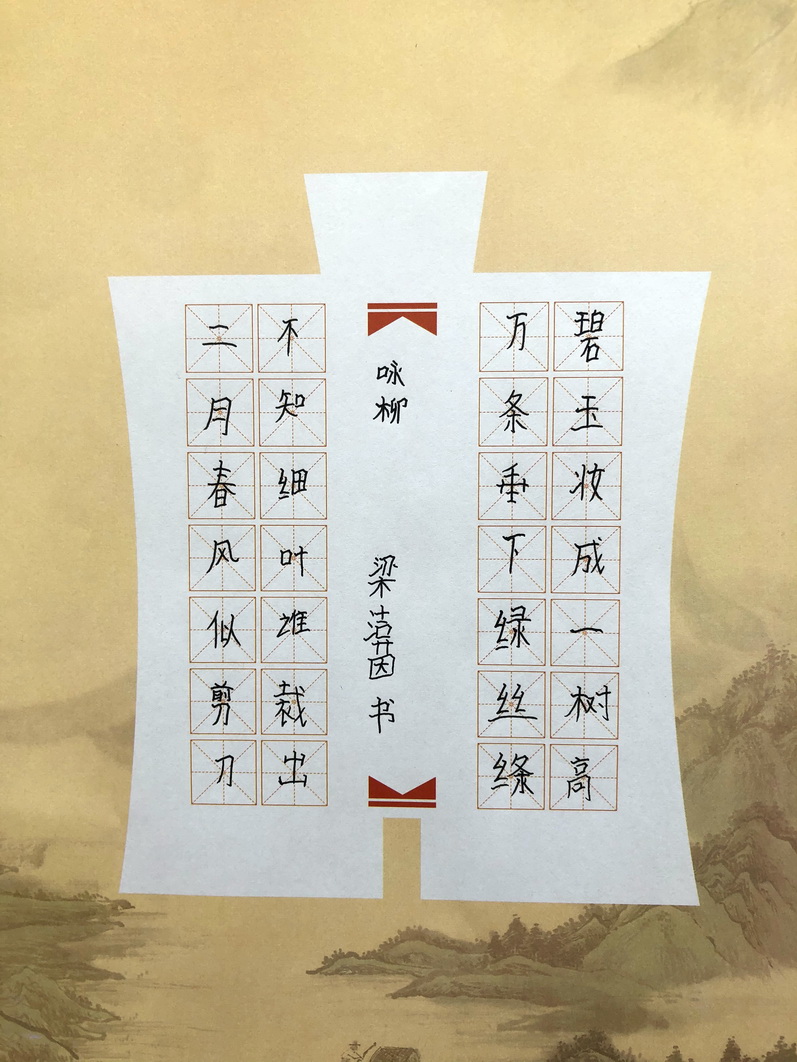 碧玉妆成一树高
万条垂下绿丝绦
咏柳
梁洁茵书
不知细叶谁裁出
二月春风似剪刀